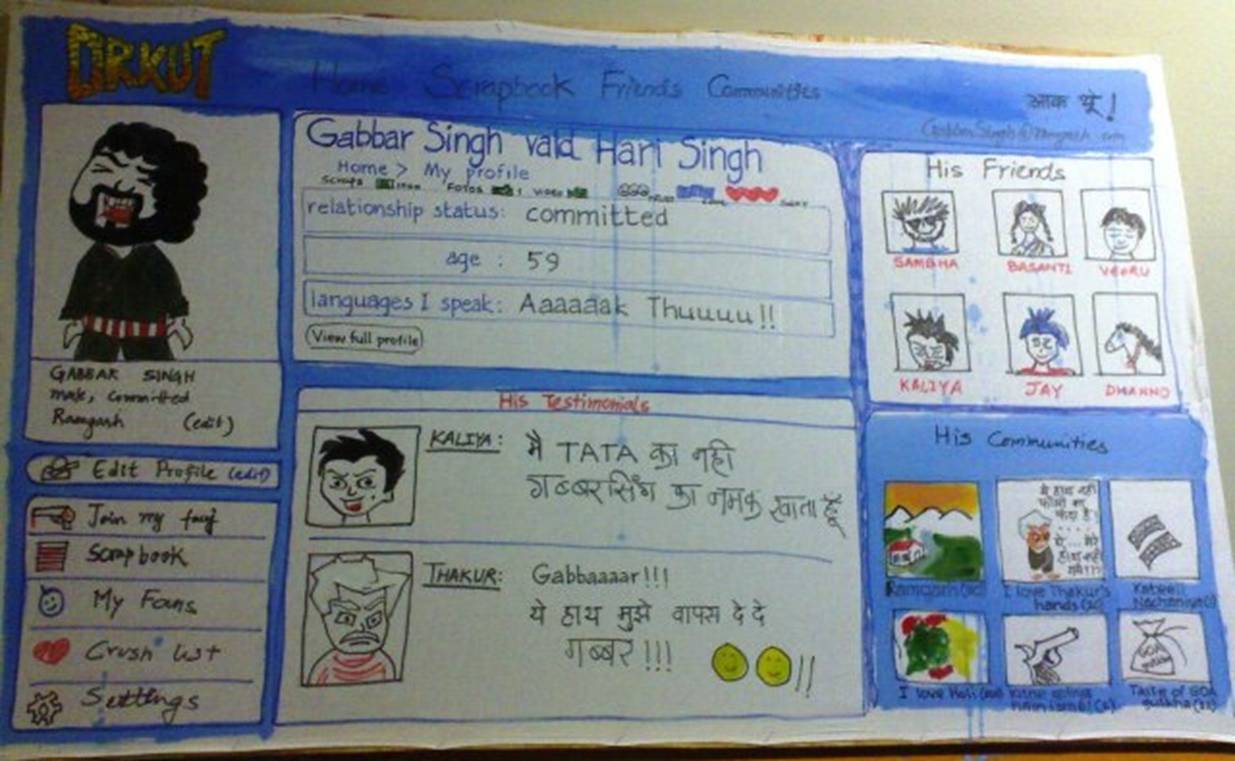 ORKUT
Home Scrapbook Friends Communities
आक थू!
Gabbar Singh vald Hari Singh
Home > My profile
Scraps
Fotos
Video
relationship status: committed
age : 59
languages I speak: Aaaaaak Thuuuu!!
View full profile
GABBAR SINGH
male, committed
Ramgarh (edit)
Edit Profile (edit)
Join my
Scrapbook
My Fans
Crush list
Settings
His Testimonials
KALIYA: मै TATA का नही
गब्बरसिंघ का नमक खाता हूँ
THAKUR: Gabbaaaar!!!
ये हाथ मुझे वापस दे दे
गब्बर!!! !!
His Friends
SAMBHA BASANTI VEERU
KALIYA JAY DHANNO
His Communities
ये हाथ नही
Ramgarh I love Thakur's
hands
I love Holi Kitne
Taste of GOA
GOA